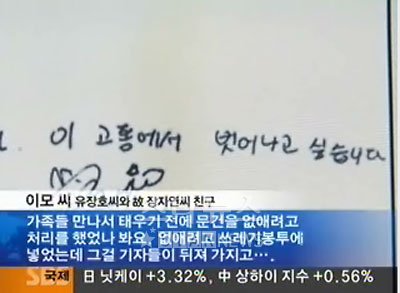 이 고통에서 벗어나고 싶습니다
이모 씨 유장호씨와 故 장자연씨 친구
가족들 만나서 태우기 전에 문건을 없애려고
처리를 했었나 봐요. 없애려고 쓰레기봉투에
넣었는데 그걸 기자들이 뒤져 가지고….
SBS 국제 日 닛케이 +3.32%, 中 상하이 지수 +0.56%